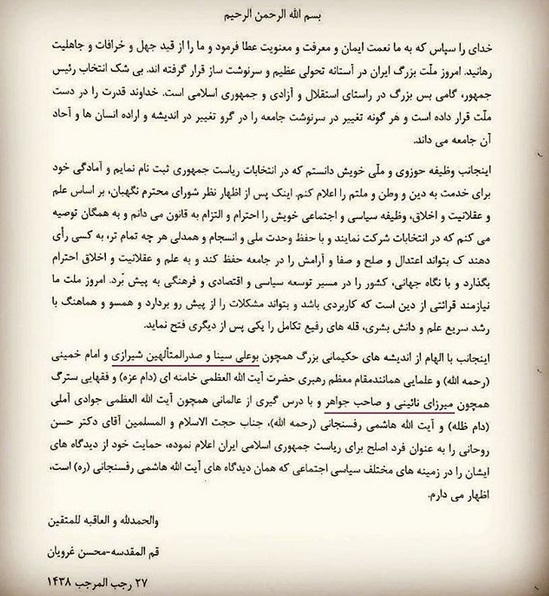 بسم الله الرحمن الرحیم
خدای را سپاس که به ما نعمت ایمان و معرفت و معنویت عطا فرمود و ما را از قید جهل و خرافات و جاهلیت
رهانید. امروز ملّت بزرگ ایران در آستانه تحولی عظیم و سرنوشت ساز قرار گرفته اند. بی شک انتخاب رئیس
جمهور، گامی بس بزرگ در راستای استقلال و آزادی و جمهوری اسلامی است. خداوند قدرت را در دست
ملّت قرار داده است و هر گونه تغییر در سرنوشت جامعه را در گرو تغییر در اندیشه و اراده انسان ها و آحاد
آن جامعه می داند.
اینجانب وظیفه حوزوی و ملّی خویش دانستم که در انتخابات ریاست جمهوری ثبت نام نمایم و آمادگی خود
برای خدمت به دین و وطن و ملتم را اعلام کنم. اینک پس از اظهار نظر شورای محترم نگهبان، بر اساس علم
و عقلانیت و اخلاق، وظیفه سیاسی و اجتماعی خویش را احترام و التزام به قانون می دانم و به همگان توصیه
می کنم که در انتخابات شرکت نمایند و با حفظ وحدت ملی و انسجام و همدلی هر چه تمام تر، به کسی رأی
دهند ک بتواند اعتدال و صلح و صفا و آرامش را در جامعه حفظ کند و به علم و عقلانیت و اخلاق احترام
بگذارد و با نگاه جهانی، کشور را در مسیر توسعه سیاسی و اقتصادی و فرهنگی به پیش بُرد. امروز ملت ما
نیازمند قرائتی از دین است که کاربردی باشد و بتواند مشکلات را از پیش رو بردارد و همسو و هماهنگ با
رشد سریع علم و دانش بشری، قله های رفیع تکامل را یکی پس از دیگری فتح نماید.
اینجانب با الهام از اندیشه های حکیمانی بزرگ همچون بوعلی سینا و صدرالمتألهین شیرازی و امام خمینی
(رحمه الله) و علمایی همانندمقام معظم رهبری حضرت آیت الله العظمی خامنه ای (دام عزه) و فقهایی سترگ
همچون میرزای نائینی و صاحب جواهر و با درس گیری از عالمانی همچون آیت الله العظمی جوادی آملی
(دام ظله) و آیت الله هاشمی رفسنجانی (رحمه الله)، جناب حجت الاسلام و المسلمین آقای دکتر حسن
روحانی را به عنوان فرد اصلح برای ریاست جمهوری اسلامی ایران اعلام نموده، حمایت خود از دیدگاه های
ایشان را در زمینه های مختلف سیاسی اجتماعی که همان دیدگاه های آیت الله هاشمی رفسنجانی (ره) است،
اظهار می دارم.
والحمدلله و العاقبه للمتقین
قم المقدسه-محسن غرویان
۲۷ رجب المرجب ۱۴۳۸